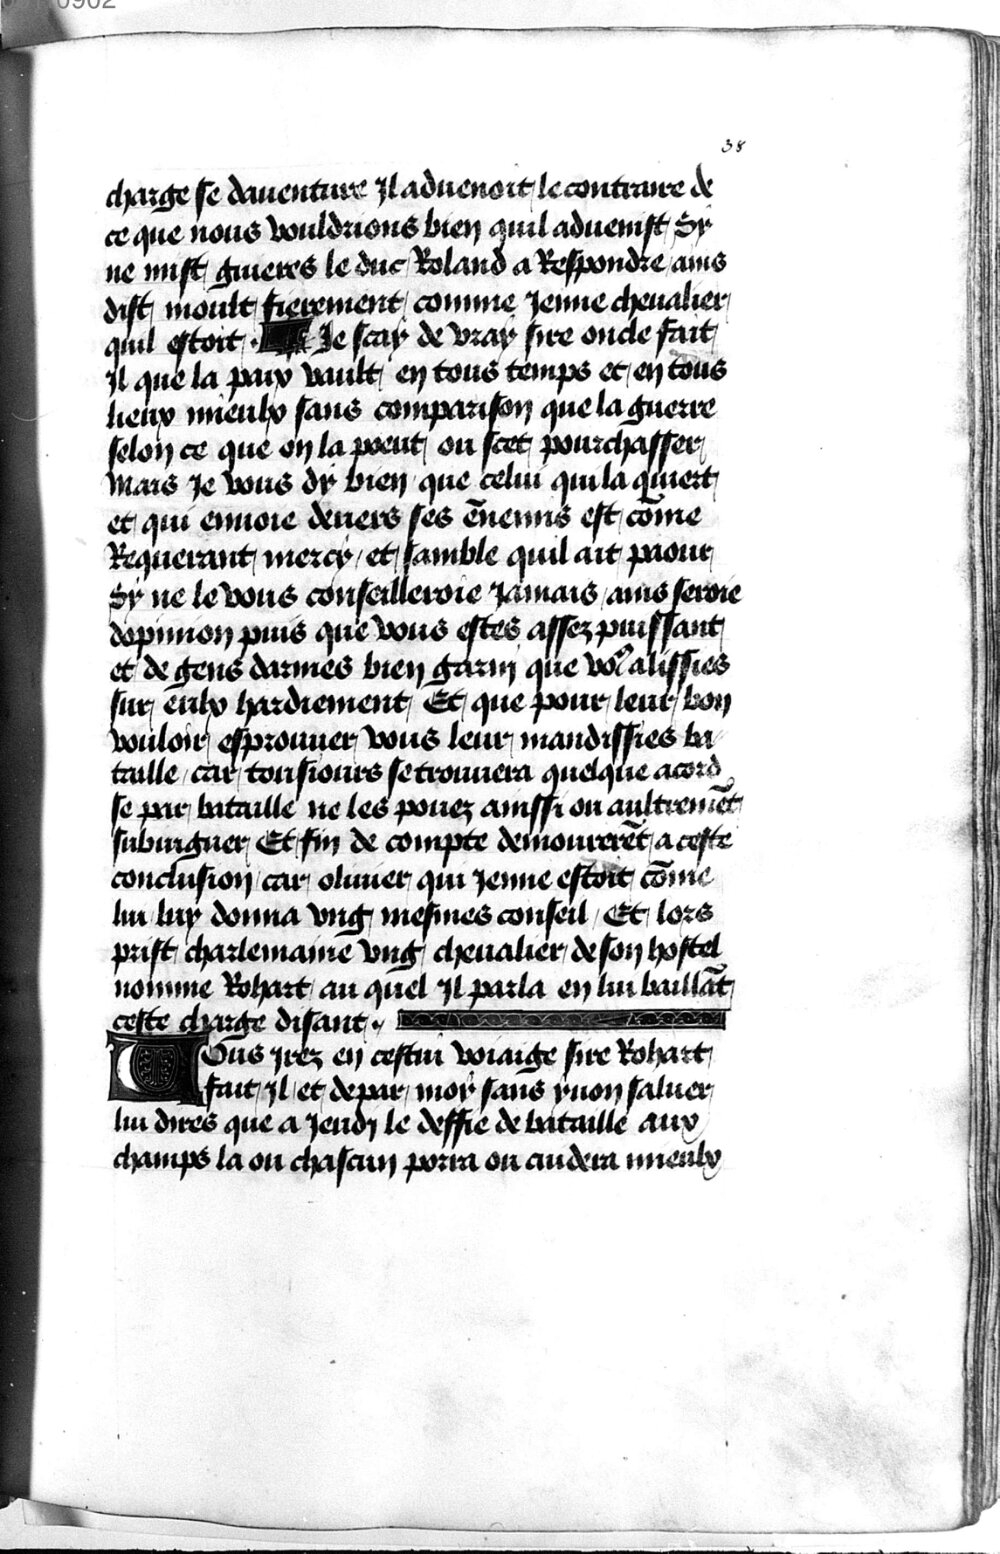 0902
38
charge se daventure Il advenoit le contraire de
ce que nous vouldrions bien quil advenist Sy
ne mist guieres le duc Roland a Respondre ains
dist moult fierement comme Jenne chevalier
quil estoit . Je scay de vray sire oncle fait
Il que la paix vault en tous temps et en tous
lieux mieulx sans comparison que la guerre
selon ce que on la poeut ou scet pourchasser
Mais Je vous dy bien que celui qui la quiert
et qui envoie devers ses ēnemis est cōme
Requerant mercy et samble quil ait paour
Sy ne le vous conseilleroie Jamais ains seroie
dopinion puis que vous estes assez puissant
et de gens darmes bien garni que voꝰ alissies
sur eulx hardiement Et que pour leur bon
vouloir esprouver vous leur mandissies ba
taille car tousiours se trouvera quelque acord
se par bataille ne les povez ainssi ou aultremēt
subiuguer Et fin de compte demourerēt a ceste
conclusion car olivier qui Jenne estoit cōme
lui luy donna ung mesmes conseil Et lors
prist charlemaine ung chevalier de son hostel
nomme Rohart au quel Il parla en lui baillāt
ceste charge disant .
Vous Irez en cestui voiaige sire Rohart
fait Il et de par moy sans ynon saluer
lui dires que a Jeudi le deffie de bataille aux
champs la ou chascun porra ou cuidera mieulx